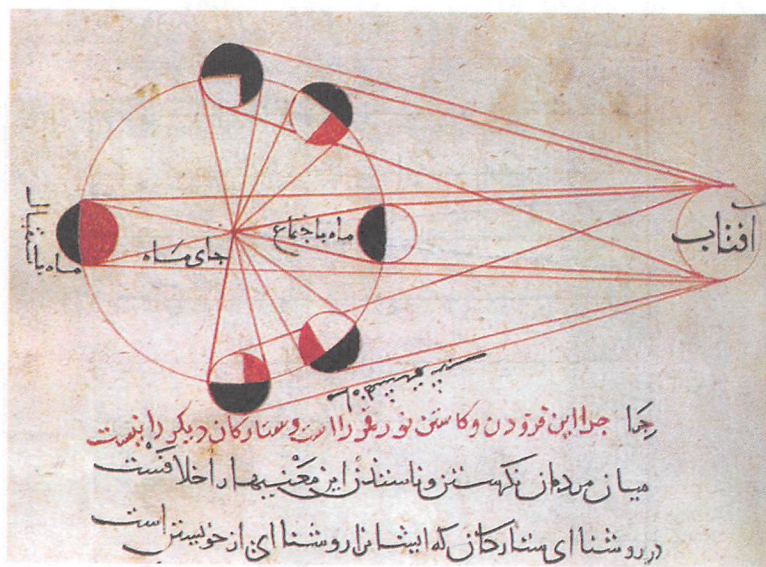 افتاب
ماه باجتماع
جای ماه
ماه باستقبال
جرا جرا این فزودن وکاستن نور قمر را است وستارکان دیکر را نیست
میان مردمان نکرستن این معنیها را خلافست
در روشنا ای ستارکان که ایشانرا روشنا ای از خویستن است